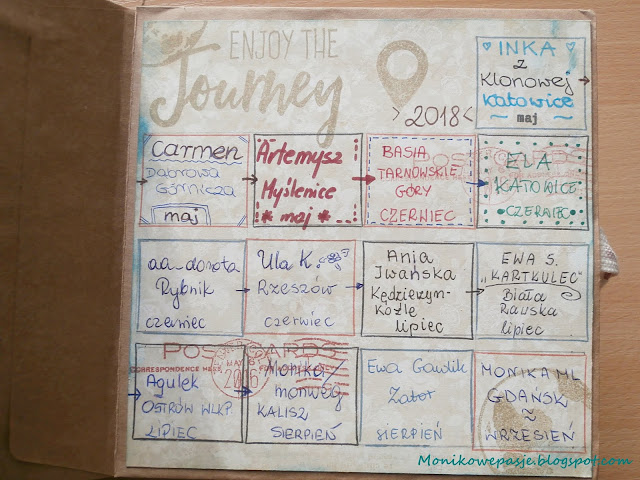 ENJOY THE
Journey
>2018<
INKA
z
Klonowej
Katowice
~ maj ~
Carmen
Dabrowa
Górnicza
maj
Artemysz
Myślenice
* maj *
BASIA
TARNOWSKIE
GÓRY
CZERWIEC
ELA
KATOWICE
CZERWIEC
aa-dorota
Rybnik
czerwiec
Ula K.
Rzeszów
czerwiec
Ania
Iwańska
Kędzierzyn-
Koźle
lipiec
EWA S.
„KARTKULEC"
Biała
Rawska
lipiec
POST CARDS
CORRESPONDENCE HERE
2016
Agulek
OSTRÓW WLKP.
LIPIEC
Monika
monweg
KALISZ
SIERPIEŃ
Ewa Gawlik
Zator
sierpień
MONIKA ML
GDAŃSK
~
WRZESIEŃ
Monikowepasje.blogspot.com